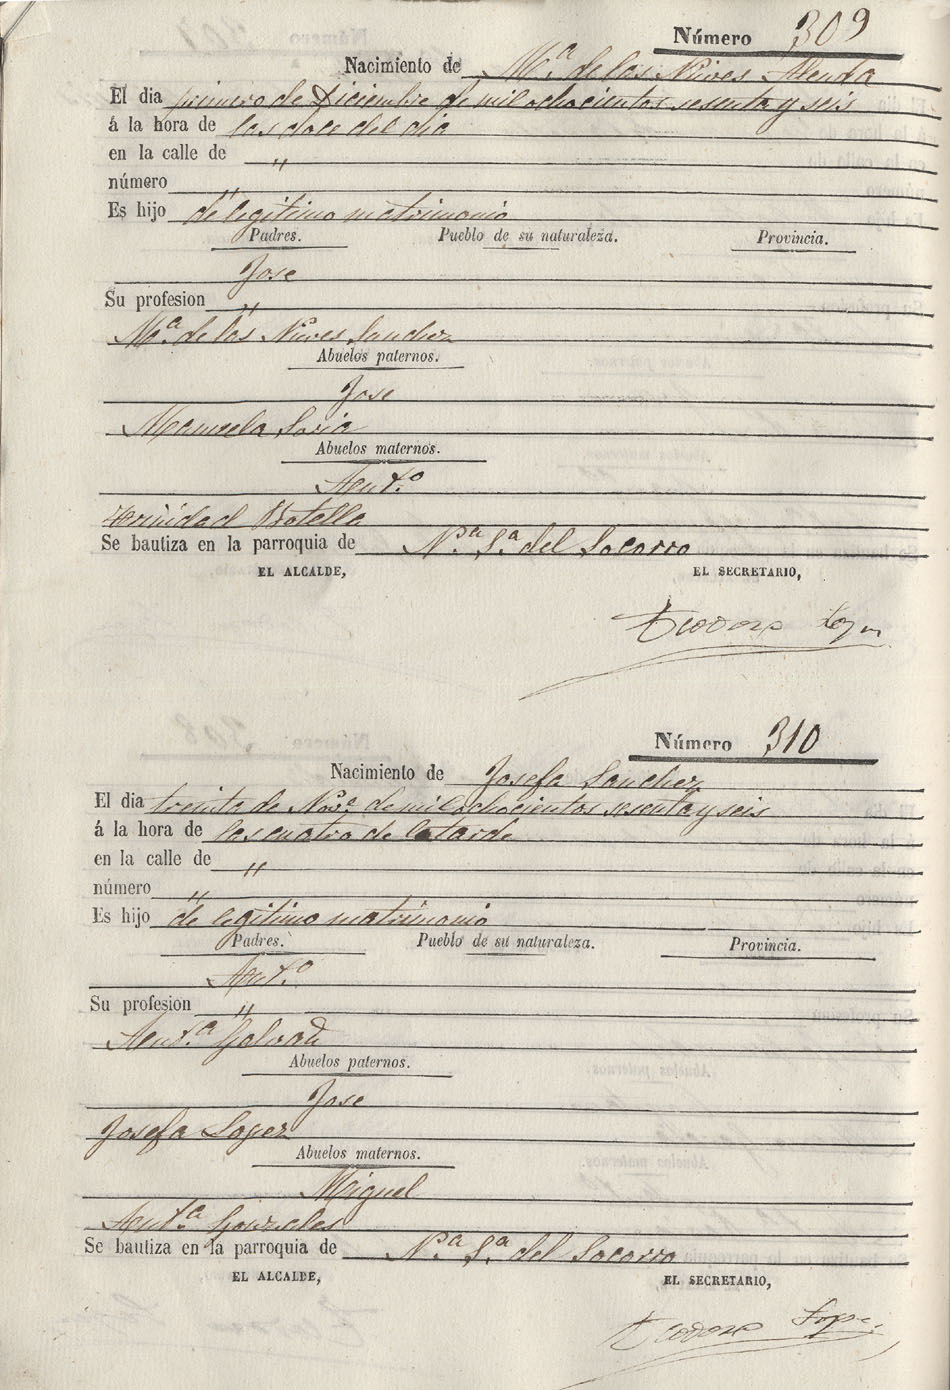 Número 309
Nacimiento de Mª. de las Nieves Alenda
El dia primero de Diciembre de mil ochocientos sesenta y seis
á la hora de las doce del dia
en la calle de "
número "
Es hijo de legitimo matrimonio
Padres. Pueblo de su naturaleza. Provincia.
Jose
Su profesion "
Mª. de las Nieves Sanchez
Abuelos paternos.
Jose
Manuela Soria
Abuelos maternos.
Antº
Trinidad Botella
Se bautiza en la parroquia de Nª. Sª. del Socorro
EL ALCALDE, EL SECRETARIO,
Teodoro Lopez
Número 310
Nacimiento de Josefa Sanchez
El dia treinta de Nove. de mil ochocientos sesenta y seis
á la hora de las cuatro de la tarde
en la calle de "
número "
Es hijo de legitimo matrimonio
Padres. Pueblo de su naturaleza. Provincia.
Antº
Su profesion "
Antª
Abuelos paternos.
Jose
Josefa Lopez
Abuelos maternos.
Miguel
Antª Gonzales
Se bautiza en la parroquia de Nª Sª. del Socorro
EL ALCALDE, EL SECRETARIO,
Teodoro Lopez